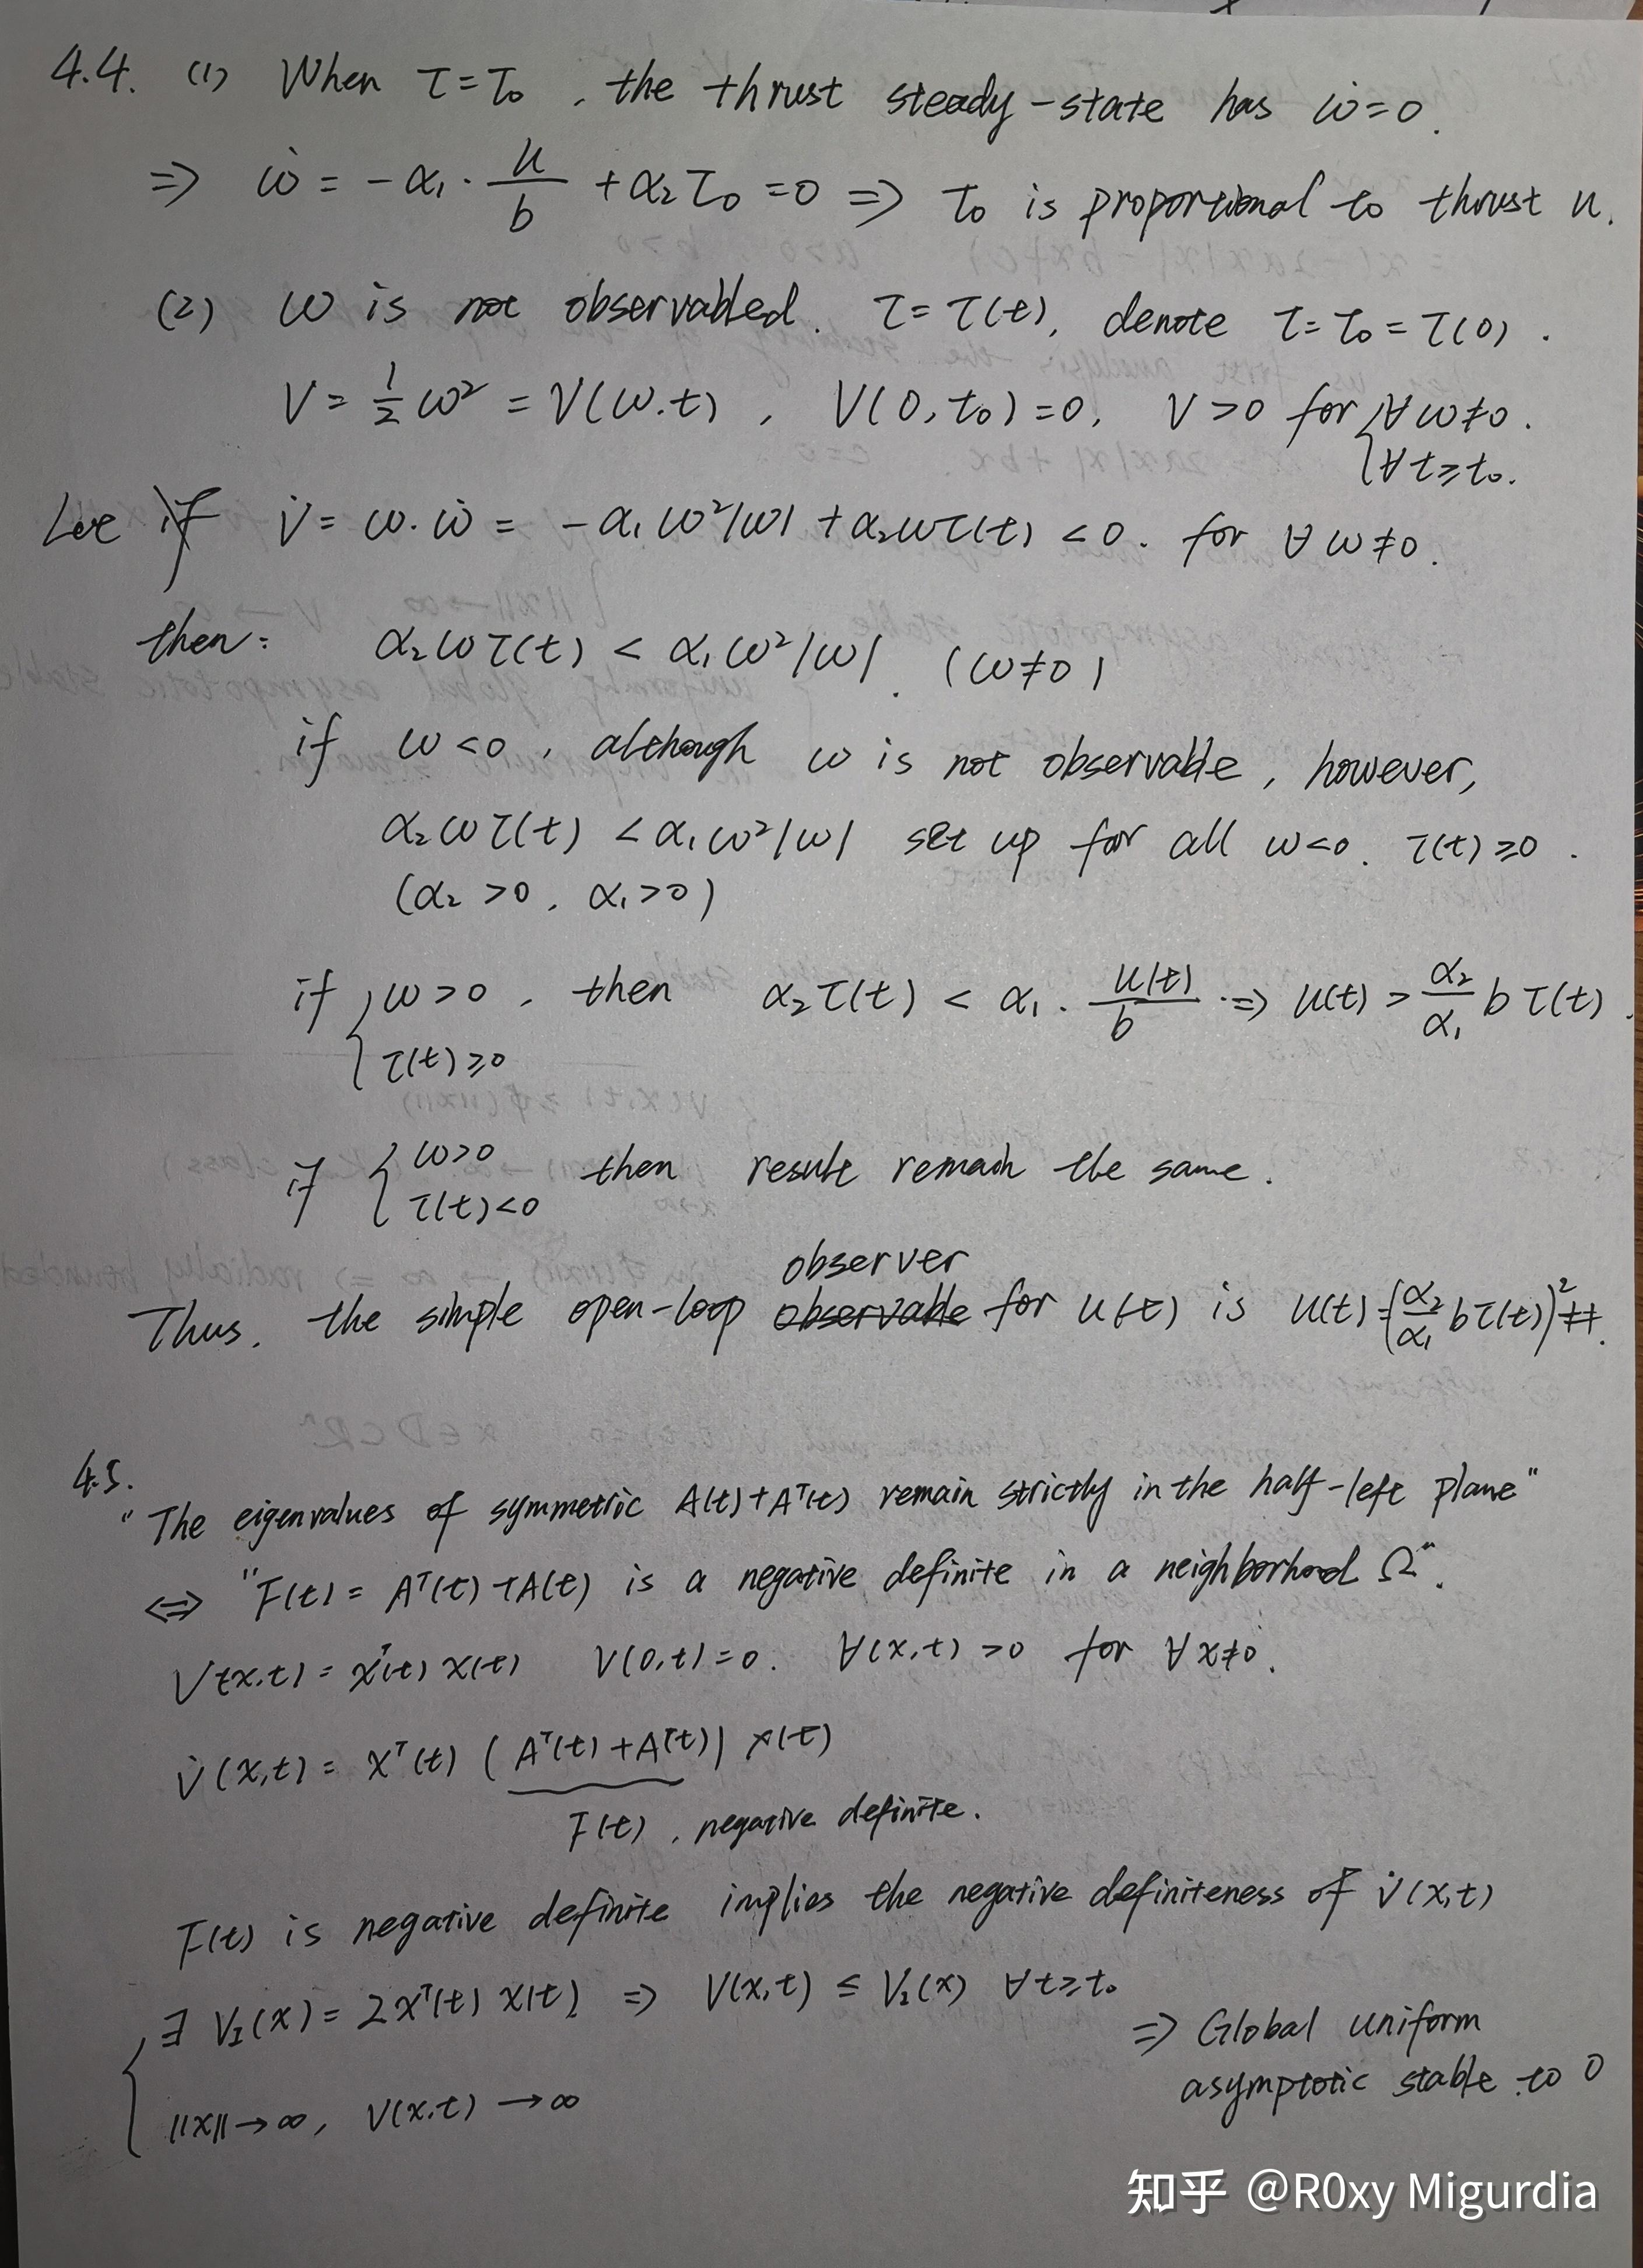 4.4. (1) When τ=τ₀, the thrust steady-state has ẇ=0.
=> ẇ = -α₁·u/b + α₂τ₀ = 0 => τ₀ is proportional to thrust u.
(2) ω is not observabled. τ=τ(t), denote τ=τ₀=τ(0).
V = 1/2 ω² = V(ω.t), V(0,t₀)=0, V>0 for { ∀ω≠0.
∀t≥t₀.
Let if V̇ = ω·ω̇ = -α₁ω²|ω| + α₂ωτ(t) <0. for ∀ω≠0.
then: α₂ωτ(t) < α₁ω²|ω|. (ω≠0)
if ω<0, although ω is not observable, however,
α₂ωτ(t) < α₁ω²|ω| set up for all ω<0. τ(t)≥0.
(α₂>0, α₁>0)
if { ω>0, then α₂τ(t) < α₁·u(t)/b => u(t) > α₂/α₁ b τ(t).
τ(t)≥0
if { ω>0 then result remain the same.
τ(t)<0
observer
Thus, the simple open-loop observable for u(t) is u(t)=(α₂/α₁ bτ(t))² #.
4.5.
"The eigenvalues of symmetric A(t)+Aᵀ(t) remain strictly in the half-left plane"
<=> "F(t) = Aᵀ(t)+A(t) is a negative definite in a neighborhood Ω".
V(x.t) = xᵀ(t) x(t) V(0,t)=0. ∀(x,t)>0 for ∀x≠0.
V̇(x,t) = xᵀ(t) (Aᵀ(t)+Aᵀ(t)) x(t)
F(t), negative definite.
F(t) is negative definite implies the negative definiteness of V̇(x,t)
{ ∃ V₁(x) = 2xᵀ(t) x(t) => V(x,t) ≤ V₁(x) ∀t≥t₀
=> Global uniform
asymptotic stable to 0
||x||→∞, V(x.t)→∞
知乎 @R0xy Migurdia